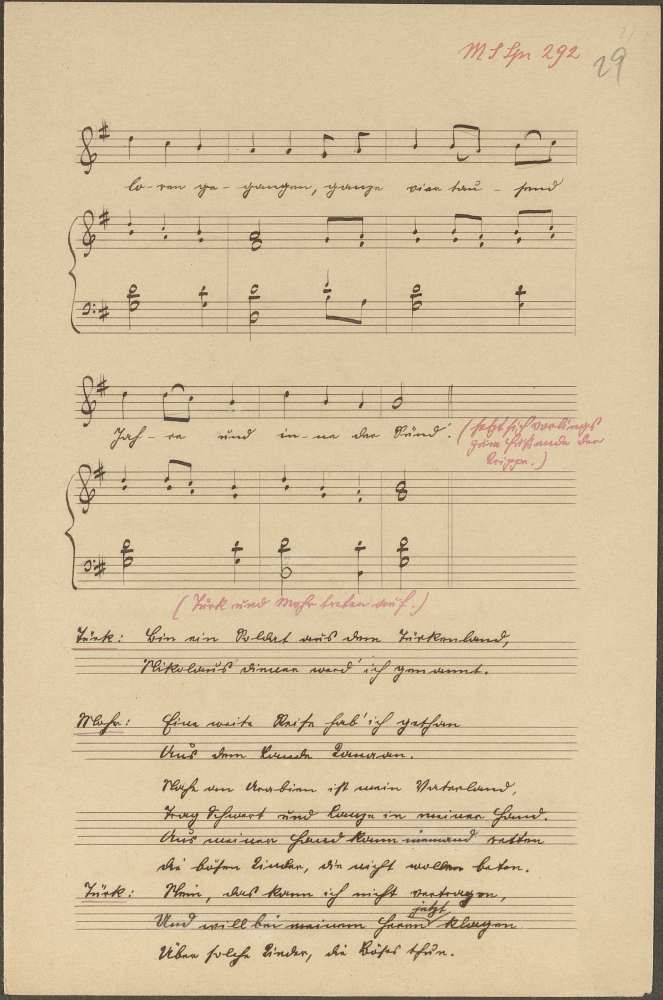 MS Spr 292
29
lo-ren ge-gangen, ganze vier tau-send
Jah-re und in-ne der Sünd'. (setzt sich vorlings
zum Fußende der
Krippe.)
(Türk und Mohr treten auf.)
Türk: Bin ein Soldat aus dem Türkenland,
Nikolaus diener werd' ich genannt.
Mohr: Eine weite Reise hab' ich gethan
Aus dem Lande Canaan.
Nahe an Arabien ist mein Vaterland,
Trag Schwert und Lanze in meiner Hand.
Aus meiner Hand kann niemand retten
die bösen Kinder, die nicht wollen beten.
Türk: Nein, das kann ich nicht vertragen,
jetzt
Und will bei meinem Herrn klagen
Über solche Kinder, die Böses thun.